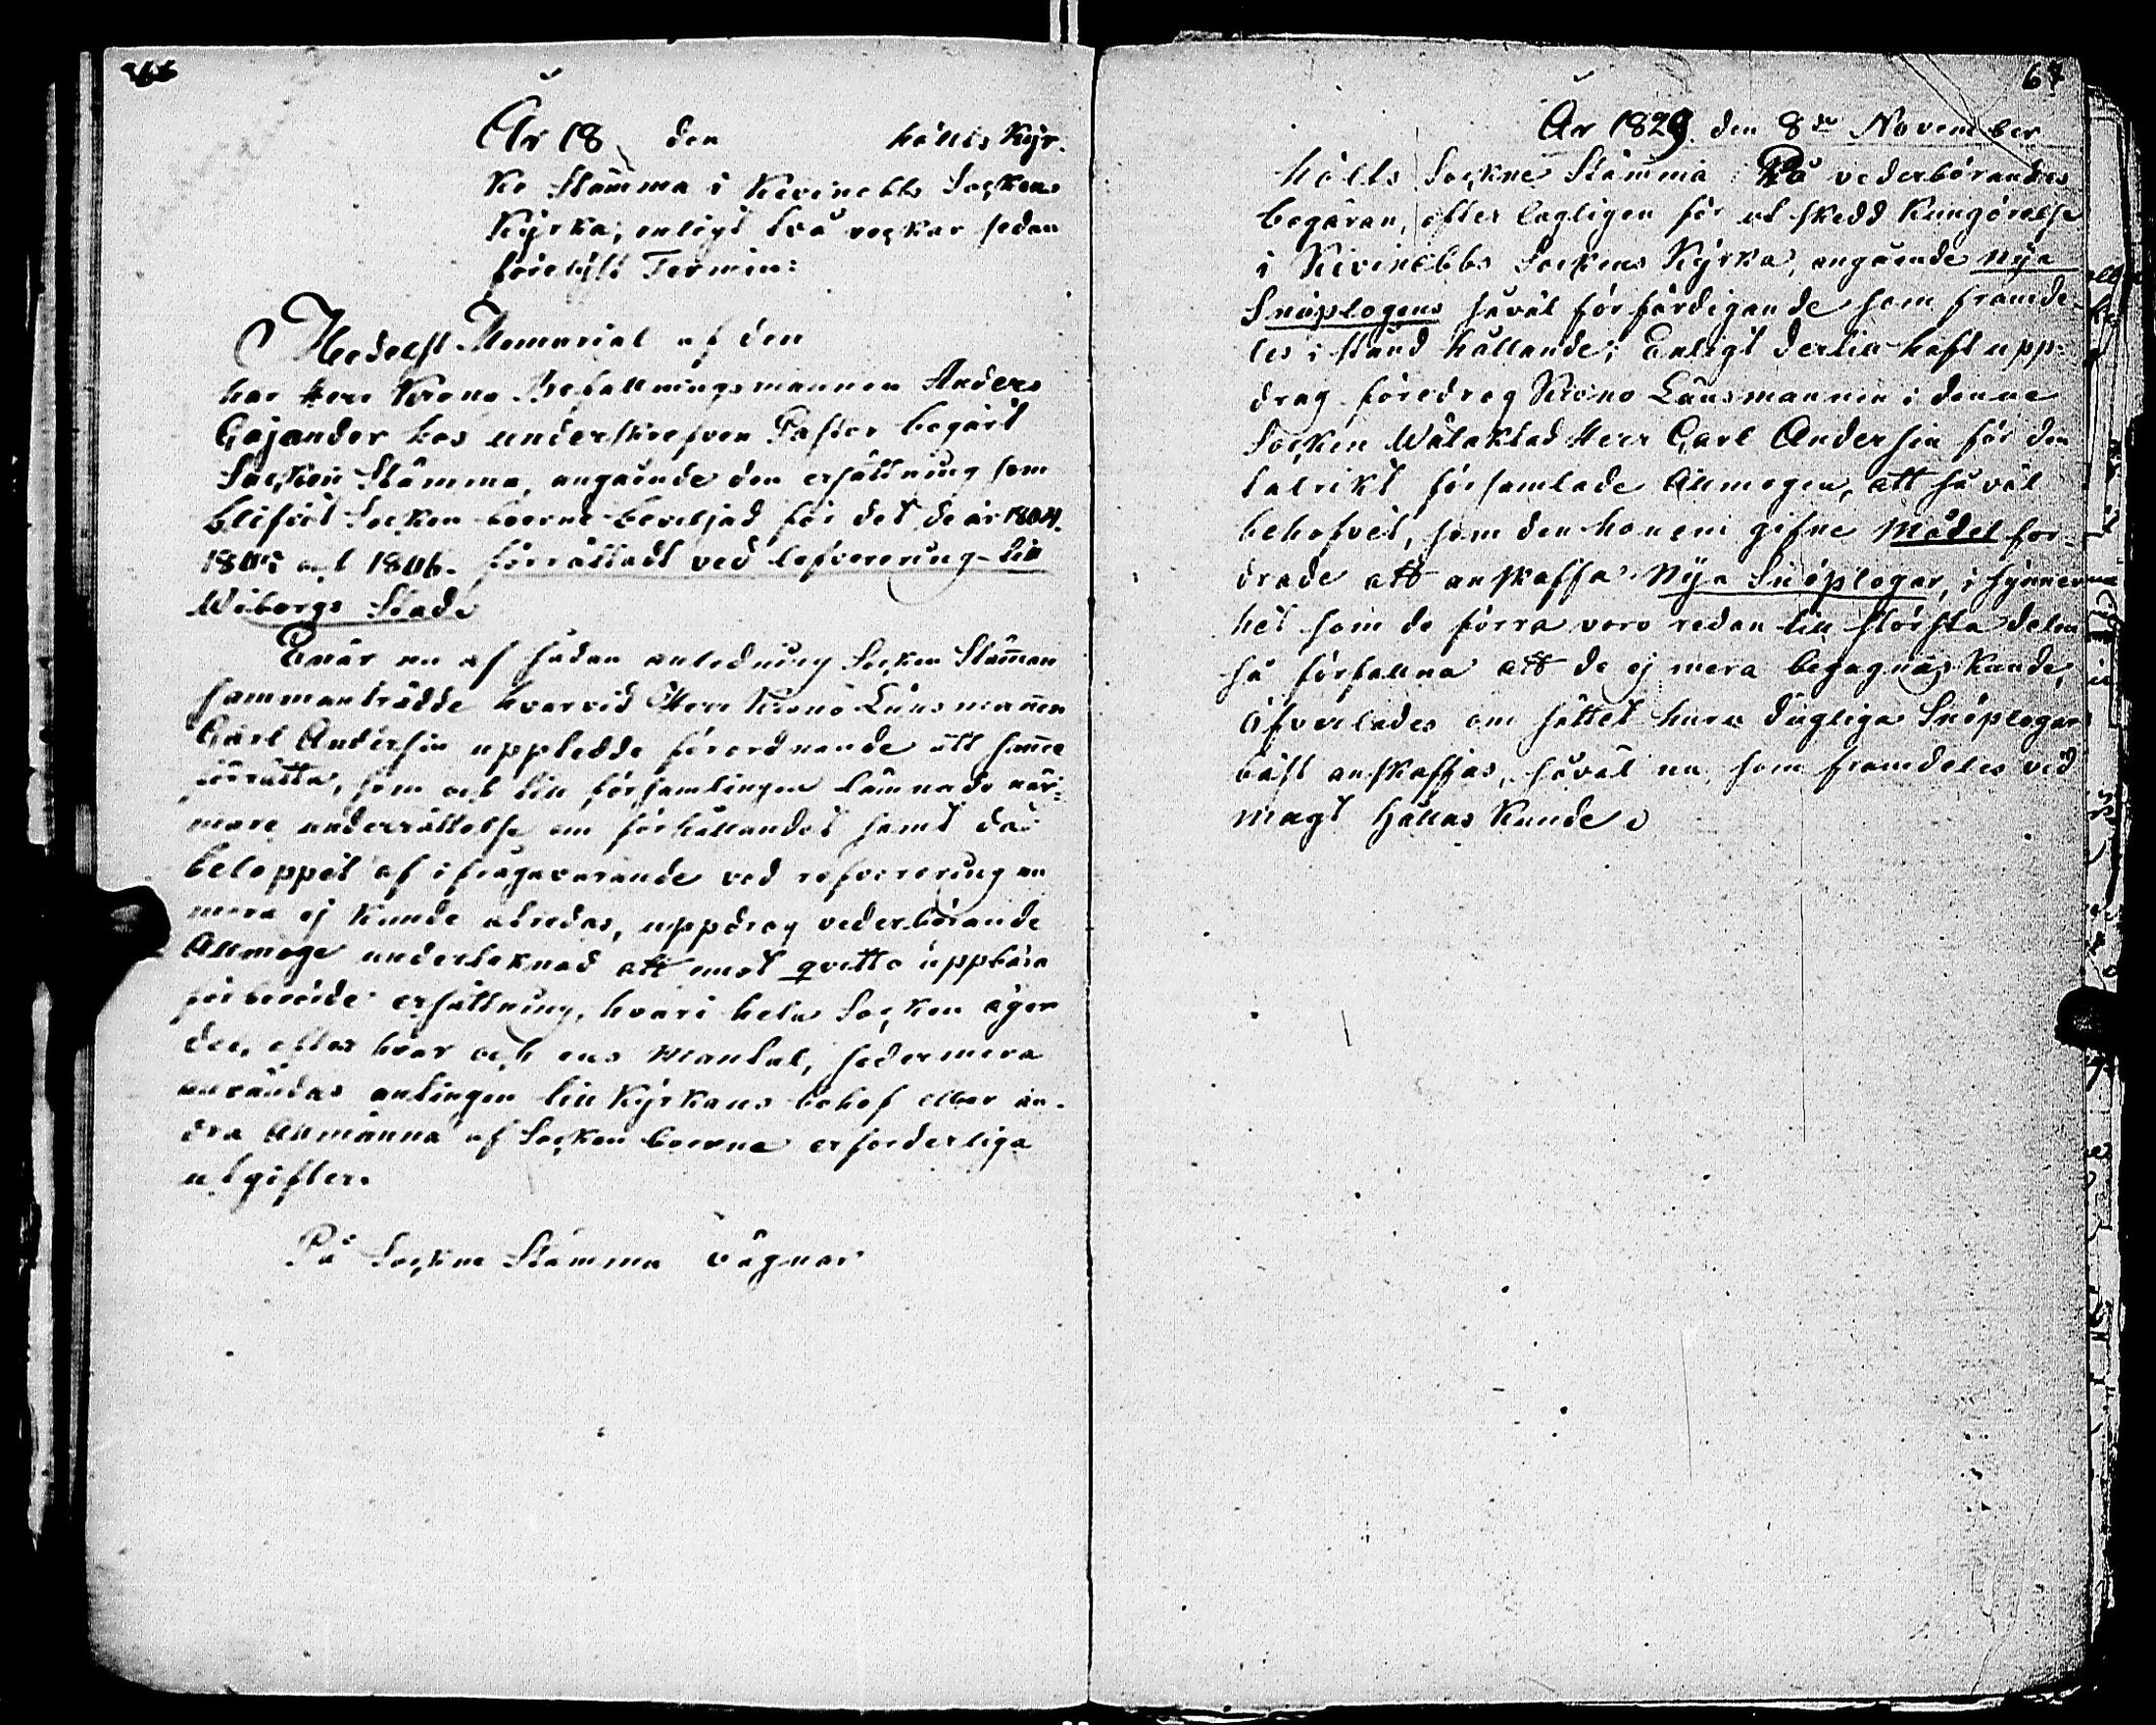 66
År 18 den hölts Kyr-
ko Stämma i Kivinebbs Sockens
Kyrka; enligt två veckor sedan
förelyst Termin:
Medelst Memorial af den
har Herr Krono Befallningsmannen Anders
Gajander hos underskrefven Pastor begärt
Socken Stämma, angående den ersättning som
blifvit Socken boerne beviljad för det de år 1804.
1805 och 1806. förrättadt ved lefverering till
Wiborgs Stad.
Enär nu af sådan anledning Socken Stämman
sammanträdde hvarvid Herr Krono Länsmannen
Carl Andersin uppledde förordnande att samma
förrätta, som och till församlingen lämnade när-
mare underrättelse om förhållandet samt då
beloppet af ifrågavarande ved lefverering nu
mera ej kunde utredas, uppdrog vederbörande
Allmoge undertecknad att emot qvitto uppbära
förberörde ersättning, hvari hela Socken äger
del, efter hvar och ens Mantal, sedermera
användas antingen till Kyrkans behof eller an-
dra Allmänna af Socken boerne erforderliga
utgifter.
På Sockne Stämma vägnar
67
År 1829. den 8de November
hölts Sockne Stämma På vederbörandes
begäran, efter lagligen för ut skedd Kungörelse
i Kivinebbs Sockens Kyrka, angående nya
Snöplogens såväl förfärdigande som framde-
les i stånd hållande; Enligt dertill haft upp-
drag föredrog Krono Länsmannen i denne
Socken Wälaktad Herr Carl Andersin för den
talrikt församlade Allmogen, att så väl
behofvet, som den honom gifne Modell for-
drade att anskaffa Nya Snöplogar, i synner-
het som de förra voro redan till största delen
så förfallna att de ej mera begagnas kunde,
öfverlades om sättet huru dugliga Snöplogar
bäst anskaffas, såväl nu, som framdeles vid
magt hållas kunde